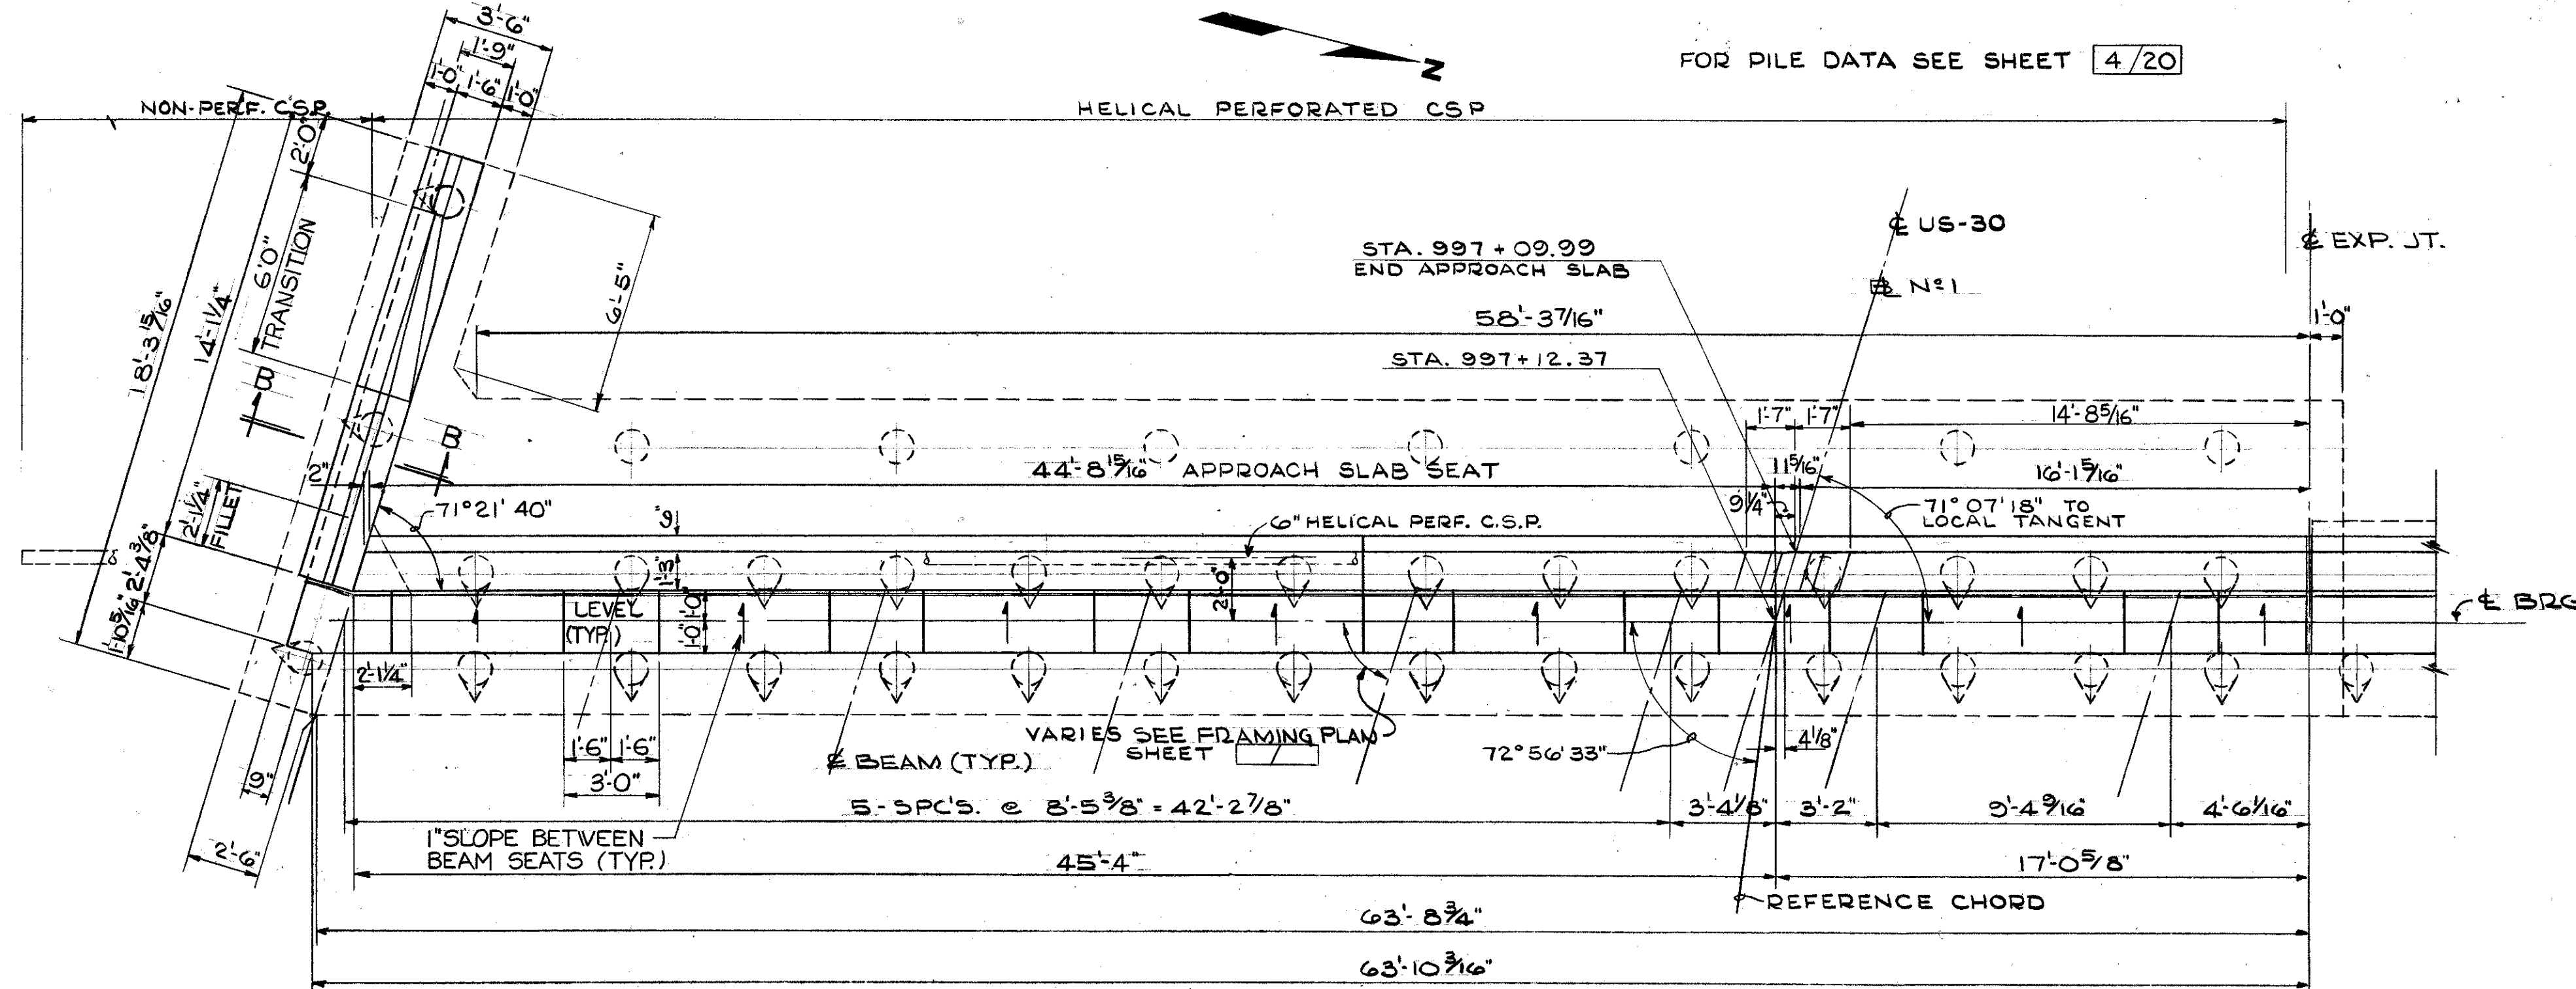 3'-6"
1'-9"
1'-0"
1'-6"
1'-0"
N
FOR PILE DATA SEE SHEET 4/20
NON-PERF. C.S.P.
HELICAL PERFORATED CSP
2'-0"
6'-0"
TRANSITION
14'-1 1/4"
18'-3 15/16"
6'-5"
STA. 997 + 09.99
END APPROACH SLAB
℄ US-30
℄ EXP. JT.
№ 1
58'-3 7/16"
1'-0"
STA. 997+12.37
B
B
1'-7"
1'-7"
14'-8 5/16"
2"
44'-8 15/16" APPROACH SLAB SEAT
11 5/16"
16'-1 5/16"
2'-1 1/4"
FILLET
71°21'40"
9"
6" HELICAL PERF. C.S.P.
9 1/4"
71°07'18" TO
LOCAL TANGENT
2'-4 3/8"
1'-10 5/16"
1'-3"
2'-0"
LEVEL
(TYP.)
1'-0"
1'-0"
℄ BRG
2'-1 1/4"
1'-6"
1'-6"
3'-0"
VARIES SEE FRAMING PLAN
SHEET /
℄ BEAM (TYP.)
72°56'33"
4 1/8"
9"
2'-6"
5-SPC'S. @ 8'-5 3/8" = 42'-2 7/8"
3'-4 1/8"
3'-2"
9'-4 9/16"
4'-6 1/16"
1" SLOPE BETWEEN
BEAM SEATS (TYP.)
45'-4"
17'-0 5/8"
REFERENCE CHORD
63'-8 3/4"
63'-10 3/16"